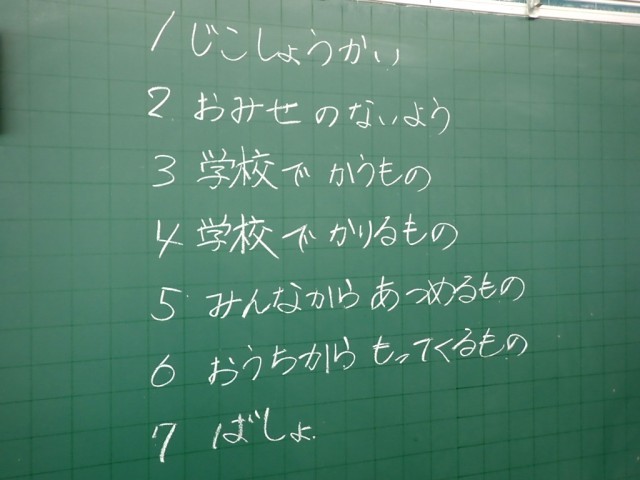 1 じこしょうかい
2 おみせのないよう
3 学校でかうもの
4 学校でかりるもの
5 みんなからあつめるもの
6 おうちからもってくるもの
7 ばしょ